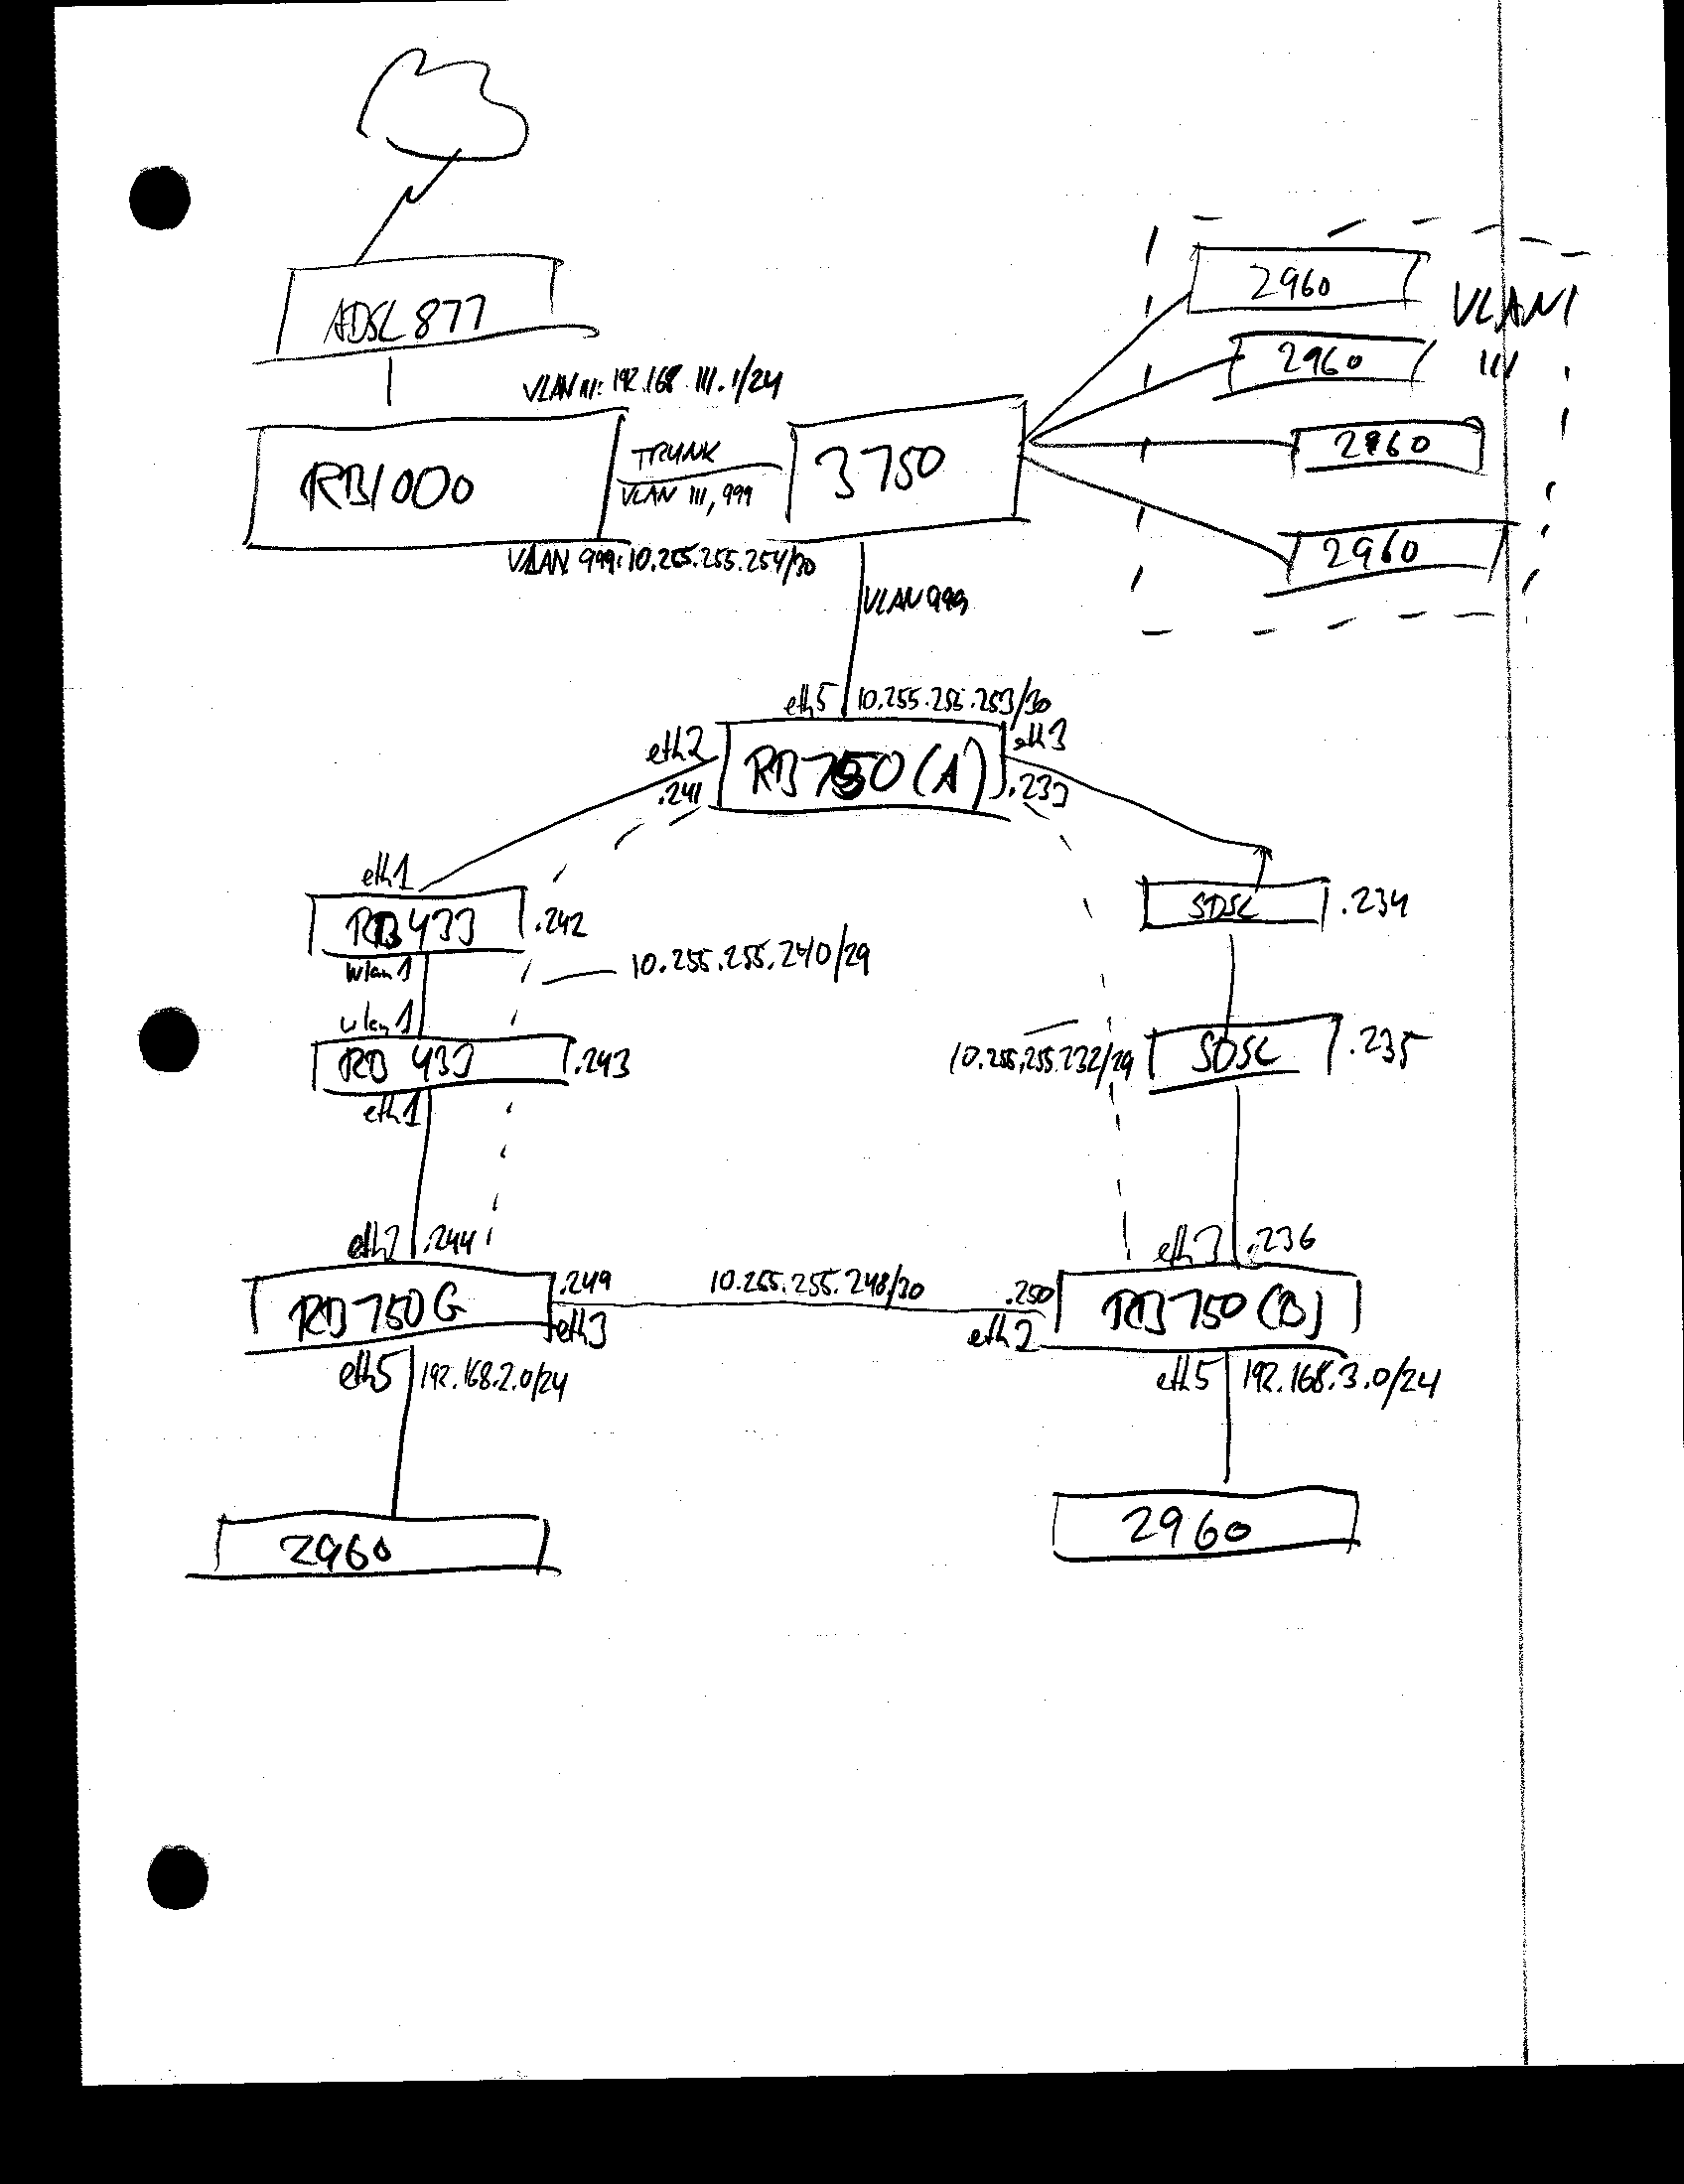 ADSL 877
VLAN 111: 192.168.111.1/24
RB1000
TRUNK
VLAN 111, 999
3750
VLAN 999: 10.255.255.254/30
2960
2960
2960
2960
VLAN
111
VLAN 999
eth5 10.255.255.253/30
eth2
.241
RB750(A)
eth3
.233
eth1
RB433 .242
wlan1
10.255.255.240/29
wlan1
RB 433 .243
eth1
SDSL .234
10.255.255.232/29
SDSL .235
eth2 .244
RB750G
.249
eth3
10.255.255.248/30
.250
eth2
eth3 .236
RB750(B)
eth5 192.168.2.0/24
eth5 192.168.3.0/24
2960
2960